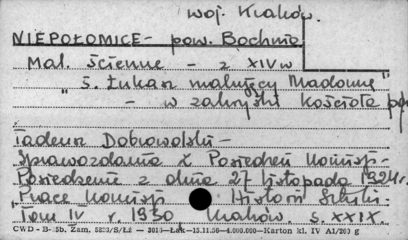 woj. Kraków.
NIEPOŁOMICE - pow. Bochnia
Mal. ścienne - z XIV w
"S. Łukasz malujący Madonnę"
- w zakrystii kościoła par
Tadeusz Dobrowolski -
Sprawozdania z Posiedzeń Komisji -
Posiedzenie z dnia 27 listopada 1924 r.
"Prace Komisji Historii Sztuki"
Tom IV r. 1930 Kraków. s. XXIX.
CWD - B-35b. Zam. /S/Łż — Łak —15.11.56—4.000.000—Karton kl. IV A1/200 g